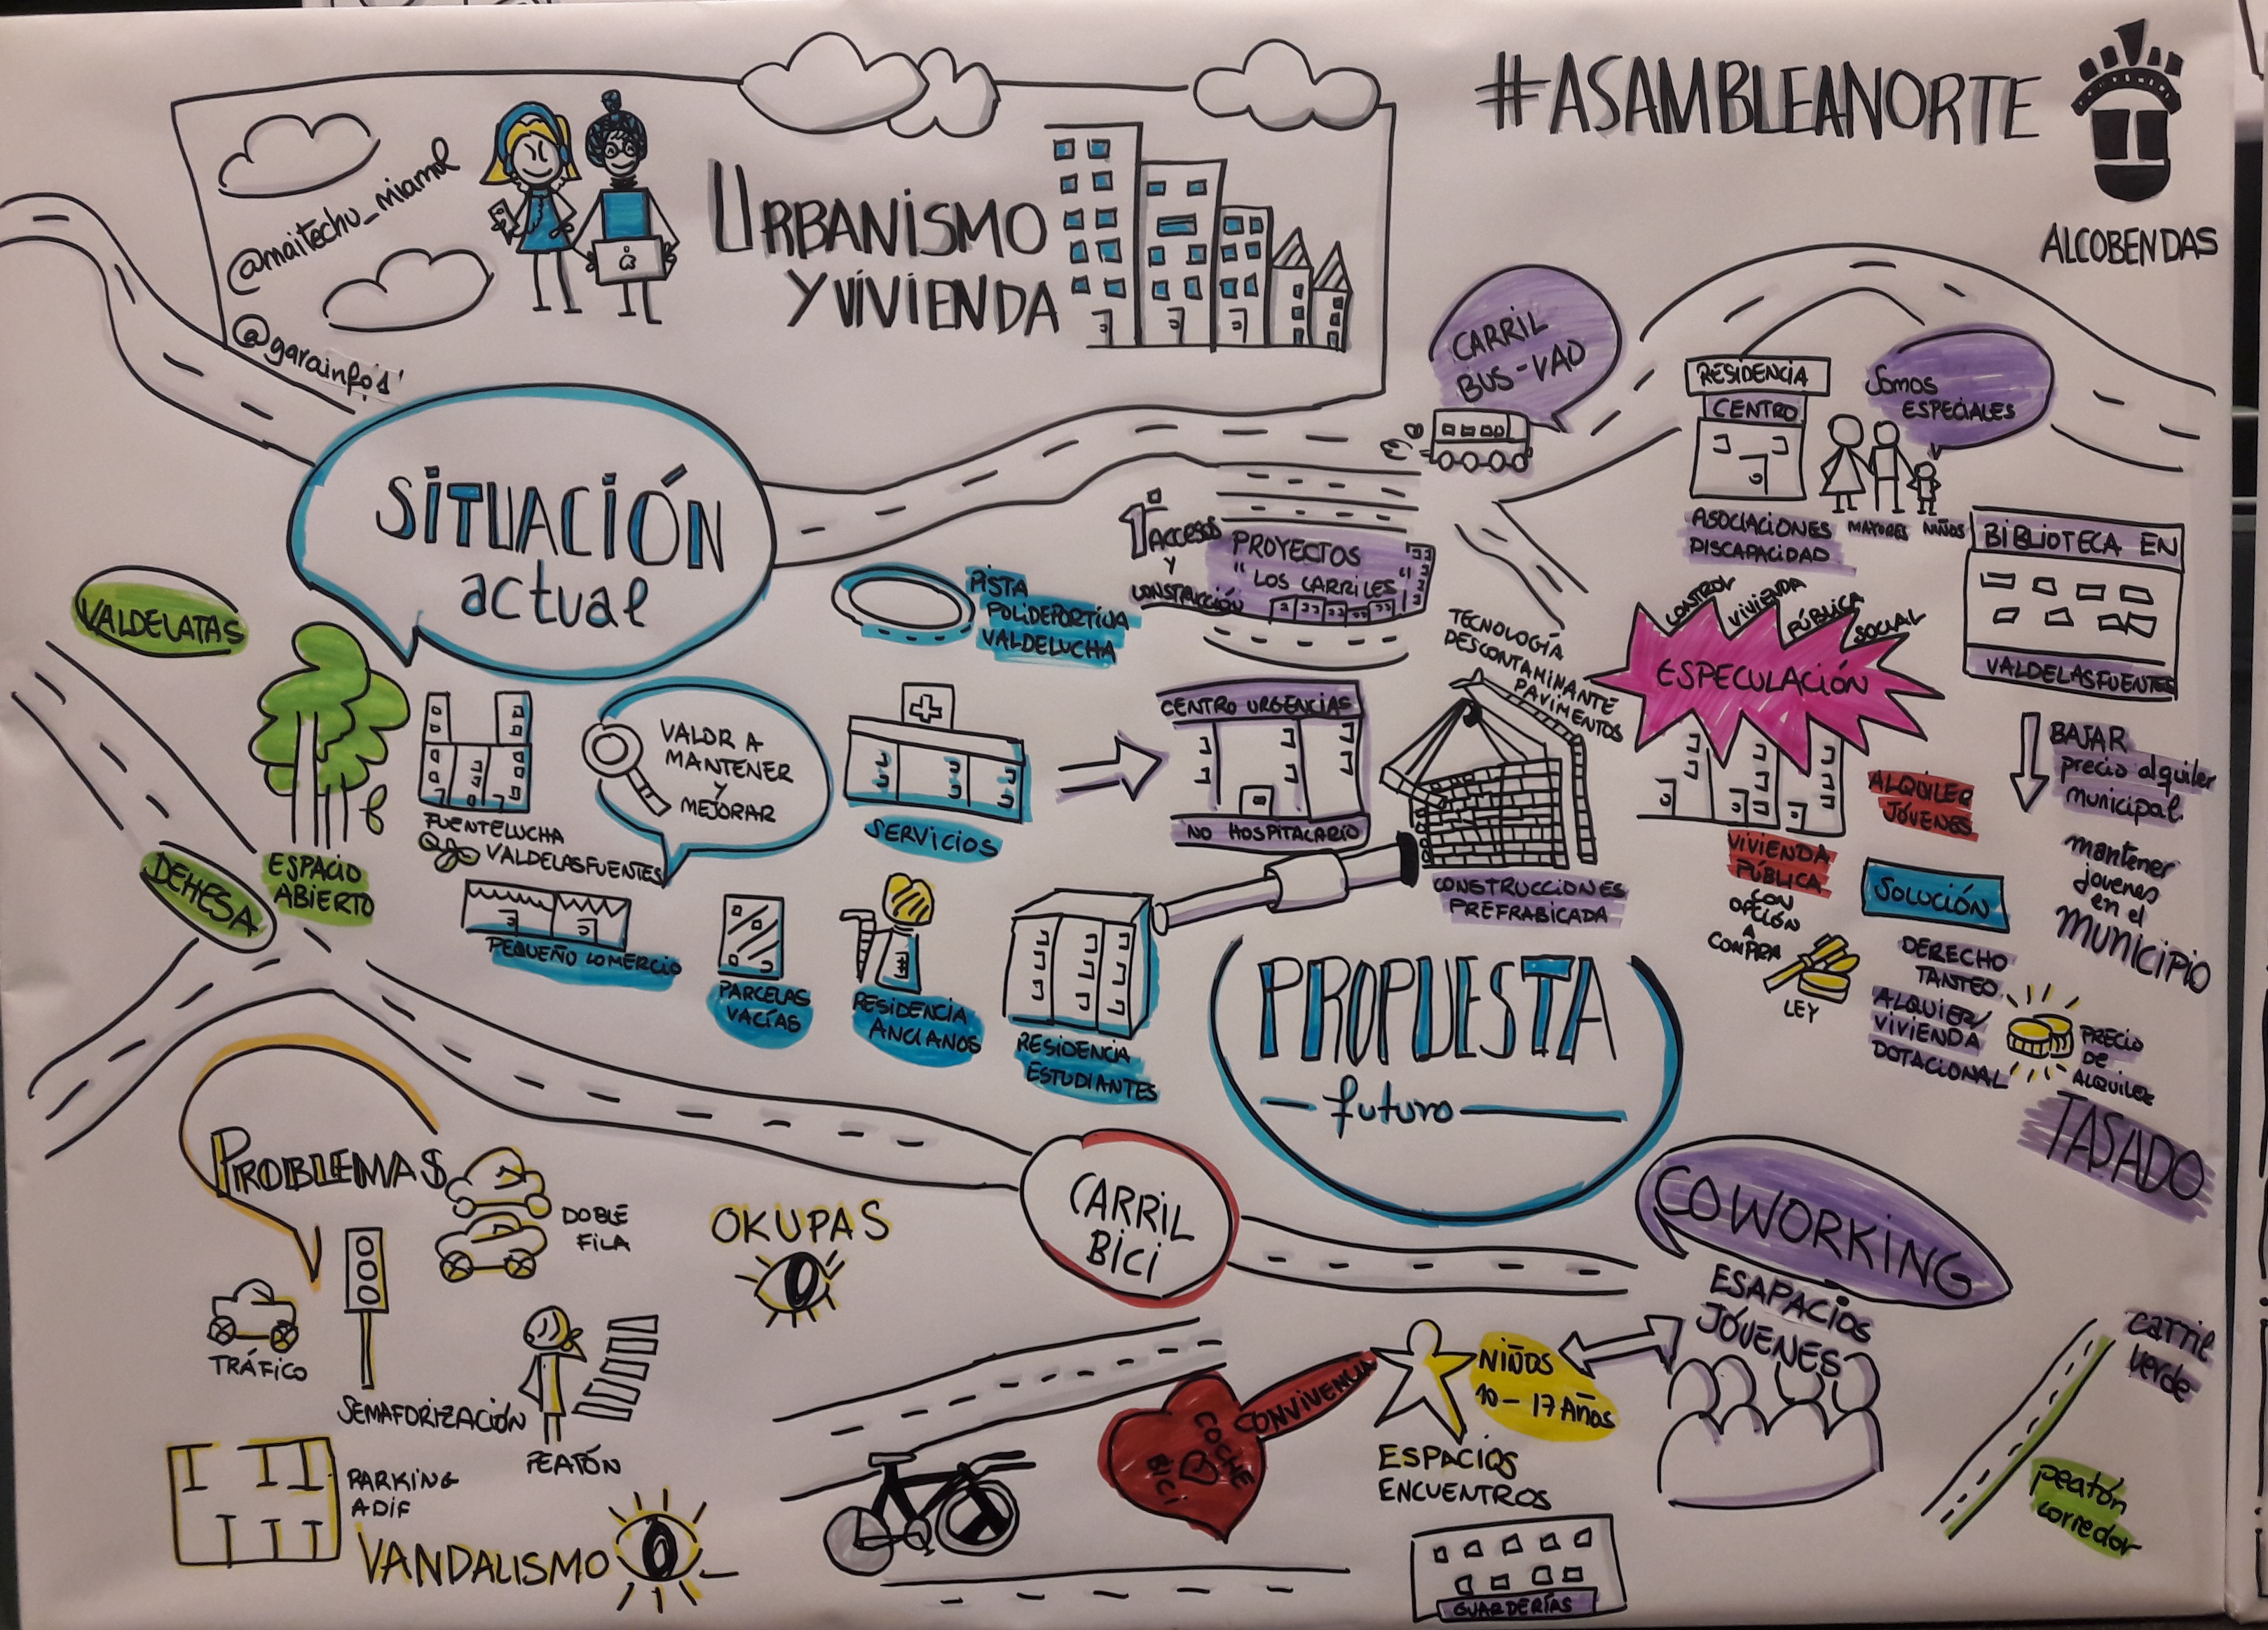 #ASAMBLEANORTE
ALCOBENDAS
@maitechu_miamol
@garainfo's'
URBANISMO
Y VIVIENDA
SITUACIÓN
actual
VALDELATAS
DEHESA
ESPACIO
ABIERTO
FUENTELUCHA
VALDELASFUENTES
VALOR A
MANTENER
Y
MEJORAR
PISTA
POLIDEPORTIVA
VALDELUCHA
SERVICIOS
PEQUEÑO COMERCIO
PARCELAS
VACÍAS
RESIDENCIA
ANCIANOS
RESIDENCIA
ESTUDIANTES
CARRIL
BUS-VAO
ACCESOS
Y
CONSTRUCCIÓN
PROYECTOS
"LOS CARRILES"
CENTRO URGENCIAS
NO HOSPITALARIO
TECNOLOGÍA
DESCONTAMINANTE
PAVIMENTOS
CONSTRUCCIONES
PREFRABICADA
RESIDENCIA
CENTRO
SOMOS
ESPECIALES
ASOCIACIONES
DISCAPACIDAD
MAYORES
NIÑOS
BIBLIOTECA EN
VALDELASFUENTES
CONTROL
VIVIENDA
PÚBLICA
SOCIAL
ESPECULACIÓN
ALQUILER
JÓVENES
VIVIENDA
PÚBLICA
CON
OPCIÓN
A
COMPRA
LEY
SOLUCIÓN
DERECHO
TANTEO
ALQUIER/
VIVIENDA
DOTACIONAL
BAJAR
precio alquiler
municipal
mantener
jovenes
en el
MUNICIPIO
PRECIO
DE
ALQUILER
TASADO
PROPUESTA
futuro
PROBLEMAS
DOBLE
FILA
TRÁFICO
SEMAFORIZACIÓN
PEATÓN
PARKING
ADIF
VANDALISMO
OKUPAS
CARRIL
BICI
COCHE
BICI
CONVIVENCIA
NIÑOS
10-17 AÑOS
ESPACIOS
ENCUENTROS
GUARDERÍAS
COWORKING
ESAPACIOS
JÓVENES
carril
verde
peatón
corredor